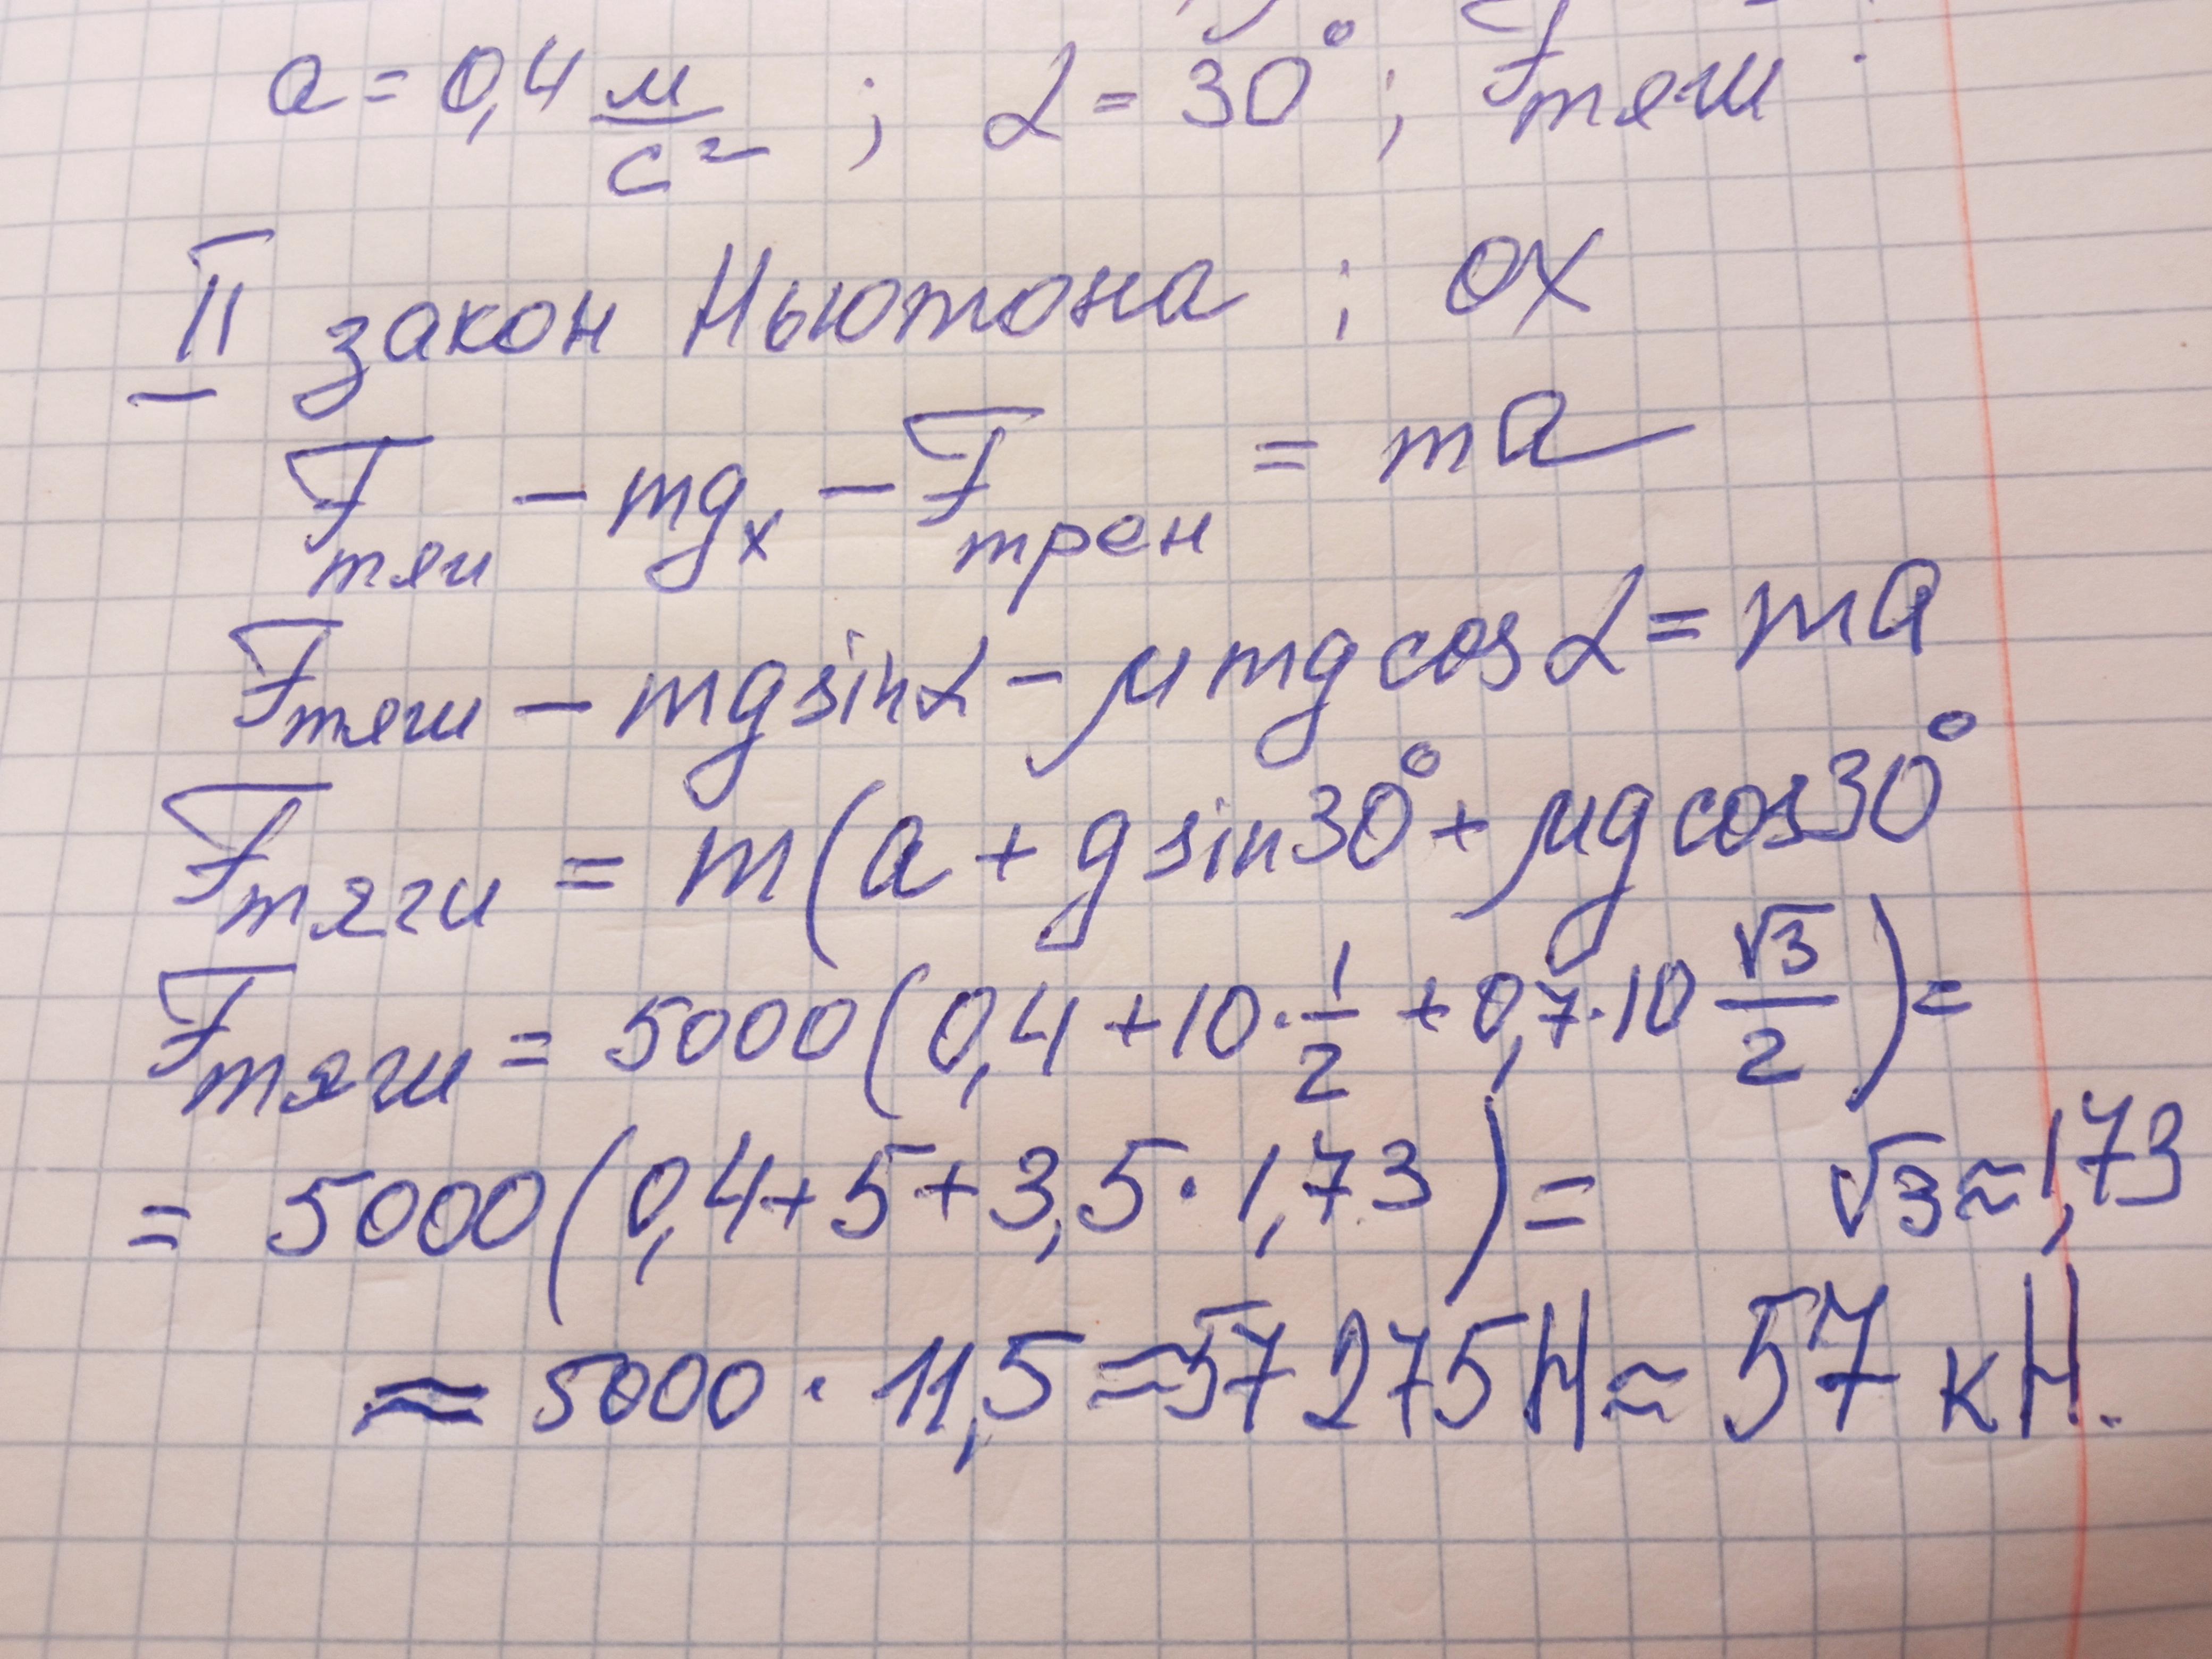 a = 0,4 м/с² ; α = 30° ; Fтяги
II закон Ньютона ; OX
Fтяги − mgx − Fтрен = ma
Fтяги − mg sinα − μmg cosα = ma
Fтяги = m(a + g sin30° + μg cos30°
Fтяги = 5000(0,4 + 10·1/2 + 0,7·10 √3/2) =
= 5000(0,4 + 5 + 3,5·1,73) = √3 ≈ 1,73
≈ 5000·11,5 ≈ 57275Н ≈ 57 кН.